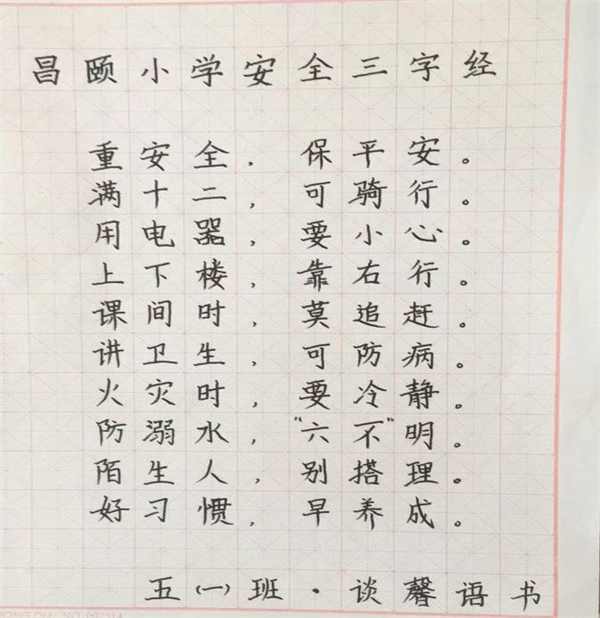 昌颐小学安全三字经
重安全，保平安。
满十二，可骑行。
用电器，要小心。
上下楼，靠右行。
课间时，莫追赶。
讲卫生，可防病。
火灾时，要冷静。
防溺水，“六不”明。
陌生人，别搭理。
好习惯，早养成。
五（一）班·谈馨语书